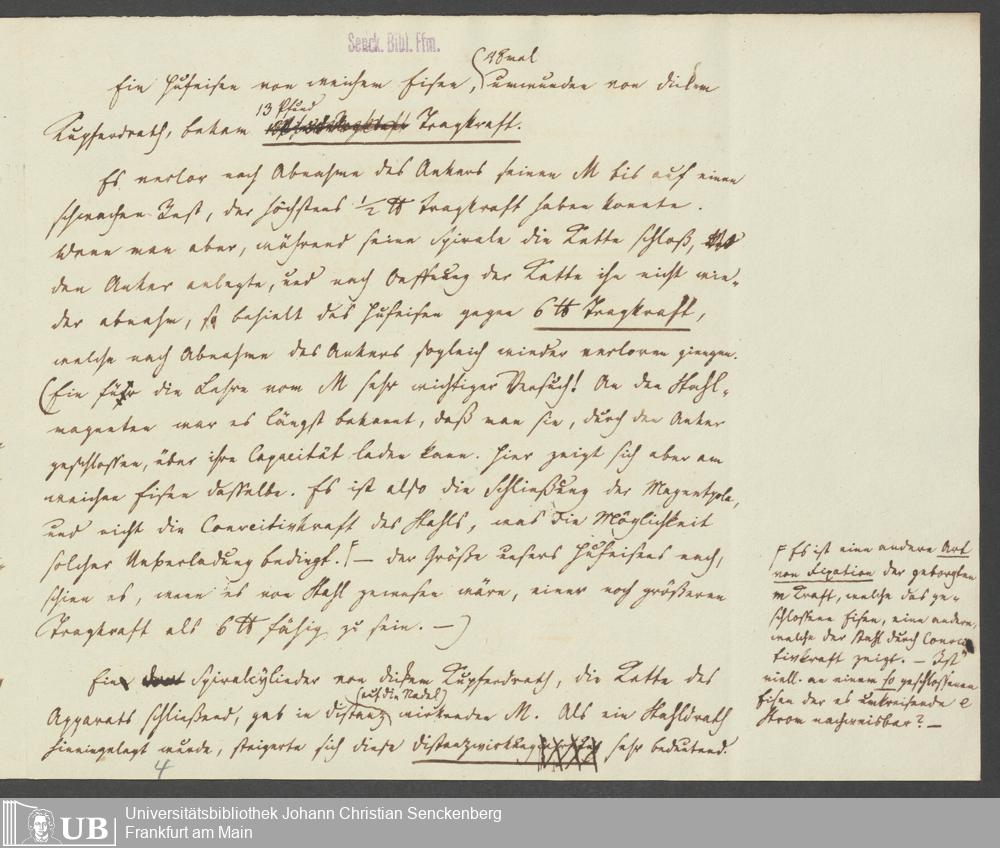 Senck. Bibl. Ffm.
18mal
Ein Hufeisen von weichem Eisen, umwunden von dickem
13 Pfund
Kupferdrath, bekam Tragkraft.
Es verlor nach Abnahme des Ankers seinen M bis auf einen
schwachen Rest, der höchstens ½ ℔ Tragkraft haben konnte.
Wenn man aber, während seine Spirale die Kette schloß,
den Anker anlegte, und nach Oeffnung der Kette ihn nicht wie-
der abnahm, so behielt das Hufeisen gegen 6 ℔ Tragkraft,
welche nach Abnahme des Ankers sogleich wieder verloren giengen.
(Ein für die Lehre vom M sehr wichtiger Versuch! An den Stahl-
magneten war es längst bekannt, daß man sie, durch den Anker
geschlossen, über ihre Capacität laden kann. Hier zeigt sich aber am
weichen Eisen dasselbe. Es ist also die Schließung der Magnetpole,
und nicht die Coercitivkraft des Stahls, was die Möglichkeit
solcher Ueberladung bedingt. – Der Größe unsers Hufeisens nach,
schien es, wenn es von Stahl gewesen wäre, einer noch größeren
Tragkraft als 6 ℔ fähig zu sein. –)
Ein Spiralcylinder von dickem Kupferdrath, die Kette des
(auf die Nadel)
Apparats schließend, gab in distanz wirkenden M. Als ein Stahldrath
hineingelegt wurde, steigerte sich diese distanzwirkung sehr bedeutend.
4
Es ist eine andere Art
von Fixation der geborgten
m Kraft, welche das ge-
schlossene Eisen, eine andere,
welche der Stahl durch Coerci-
tivkraft zeigt. – Ist
viell. an einem so geschlossenen
Eisen der es umkreisende e
Strom nachweisbar? –
UB
Universitätsbibliothek Johann Christian Senckenberg
Frankfurt am Main